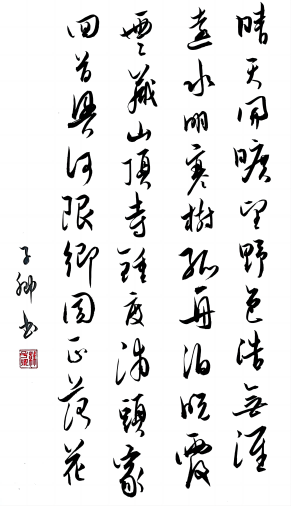 晴天開曠望野色浩無涯
遠水明寒樹孤舟泊晚霞
雲藏山頂寺鐘度浦頭家
回首興何限鄉園正落花
子卿书